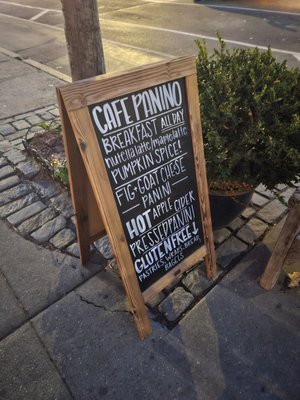 CAFE PANINO
BREAKFAST ALL DAY
nutella latte maple latte
PUMPKIN SPICE!
FIG + GOAT CHEESE
PANINI
HOT APPLE CIDER
PRESSED PANINI
GLUTEN FREE ↓
PASTRIES, WRAPS, BREAD,
BAGELS